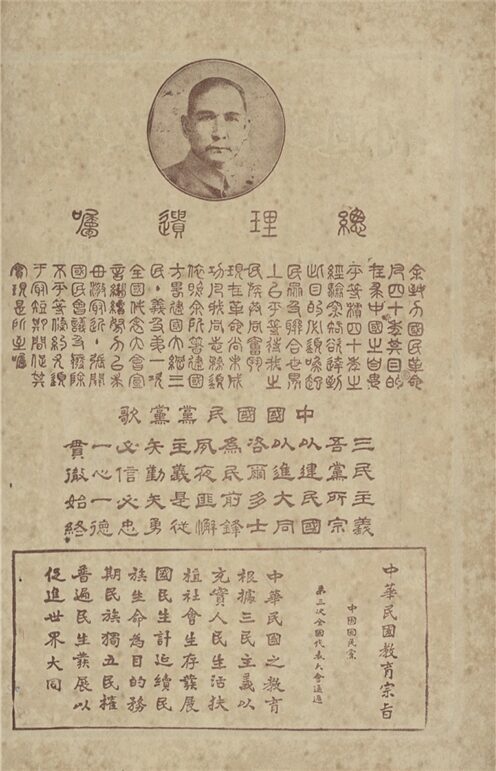 總理遺囑
余致力國民革命
凡四十年其目的
在求中國之自由
平等積四十年之
經驗深知欲達到
此目的必須喚起
民眾及聯合世界
上以平等待我之
民族共同奮鬥
現在革命尚未成
功凡我同志務須
依照余所著建國
方略建國大綱三
民主義及第一次
全國代表大會宣
言繼續努力以求
貫澈最近主張開
國民會議及廢除
不平等條約尤須
于最短期間促其
實現是所至囑
中國國民黨黨歌
三民主義
吾黨所宗
以建民國
以進大同
咨爾多士
為民前鋒
夙夜匪懈
主義是從
矢勤矢勇
必信必忠
一心一德
貫徹始終
中華民國教育宗旨
中國國民黨
第三次全國代表大會通過
中華民國之教育
根據三民主義以
充實人民生活扶
植社會生存發展
國民生計延續民
族生命為目的務
期民族獨立民權
普遍民生發展以
促進世界大同